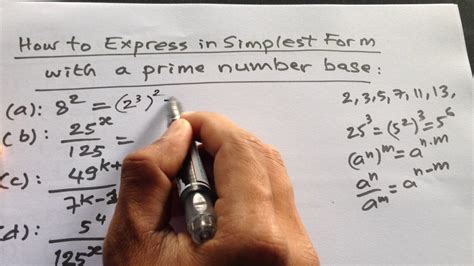 How to Express in Simplest Form
with a prime number base:
(a): 8² = (2³)²
(b): 25ˣ/125 =
(c): 49ᵏ⁺/7ᵏ⁻
(d): 5⁴/125ˣ
2, 3, 5, 7, 11, 13,
25³ = (5²)³ = 5⁶
(aⁿ)ᵐ = aⁿ·ᵐ
aⁿ/aᵐ = aⁿ⁻ᵐ